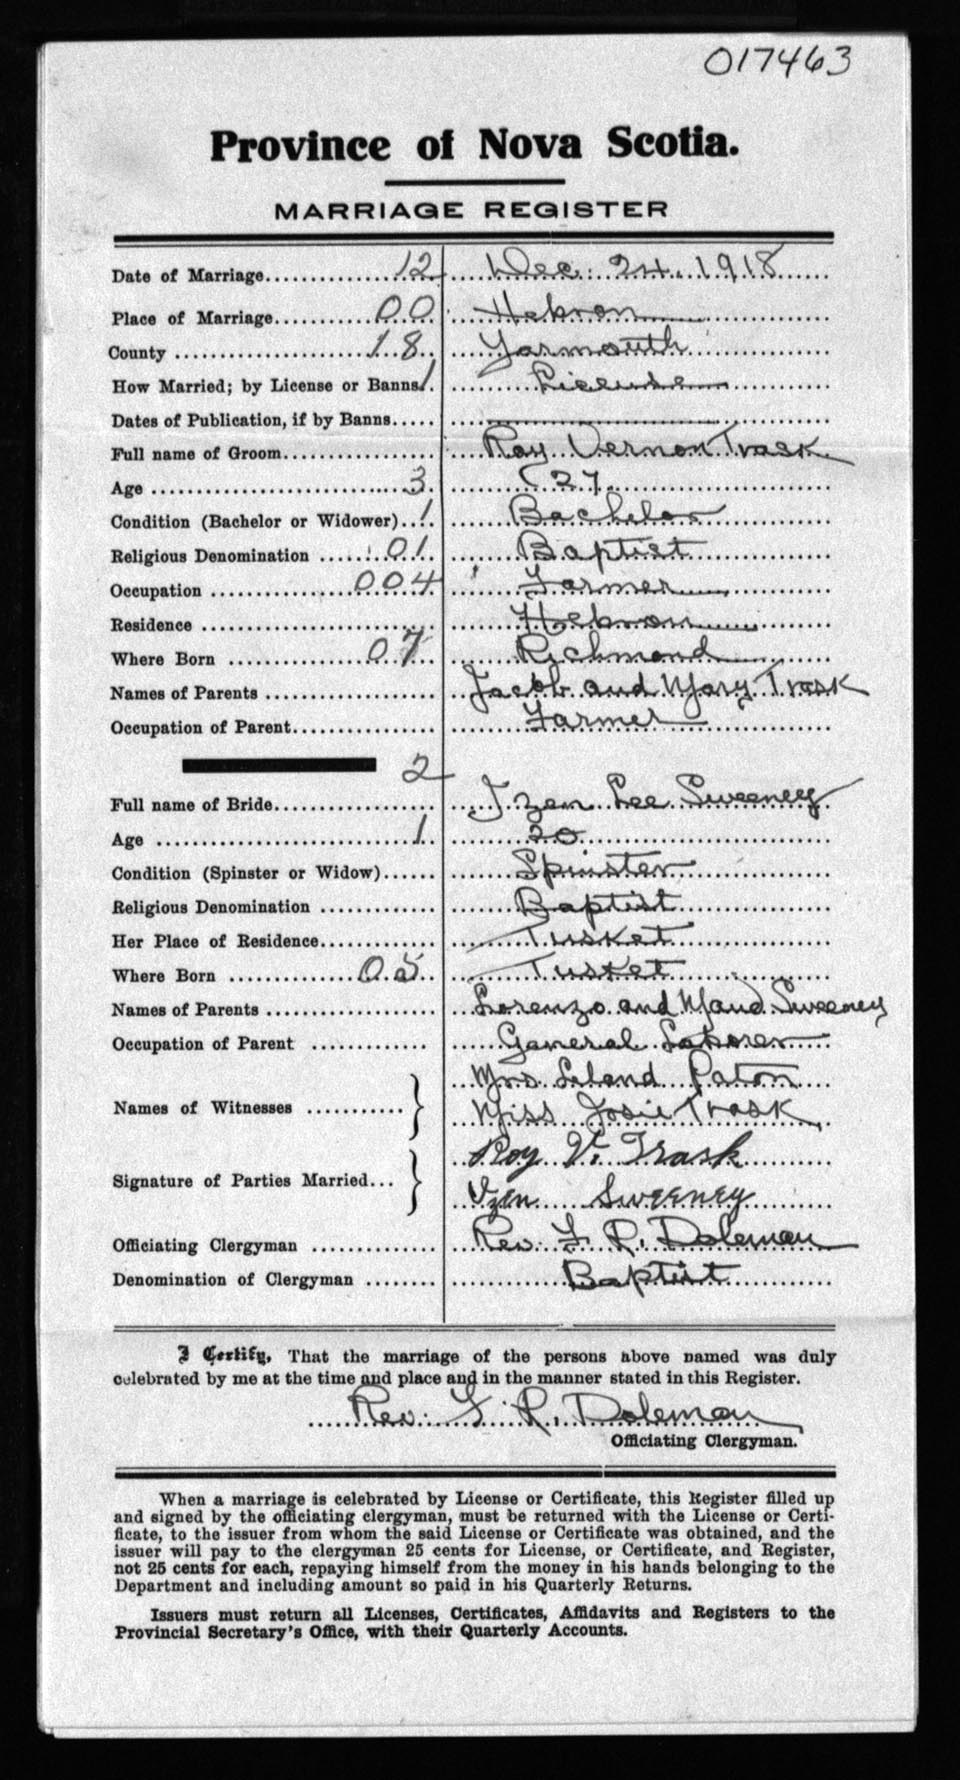 017463
Province of Nova Scotia.
MARRIAGE REGISTER
Date of Marriage 12 Dec. 24. 1918
Place of Marriage 00 Hebron
County 18 Yarmouth
How Married; by License or Banns 1 License
Dates of Publication, if by Banns
Full name of Groom Roy Vernon Trask
Age 3 27
Condition (Bachelor or Widower) 1 Bachelor
Religious Denomination 01 Baptist
Occupation 004 Farmer
Residence Hebron
Where Born 07 Richmond
Names of Parents Jacob and Mary Trask
Occupation of Parent Farmer
2
Full name of Bride Izen Lee Sweeney
Age 1 20
Condition (Spinster or Widow) Spinster
Religious Denomination Baptist
Her Place of Residence Tusket
Where Born 05 Tusket
Names of Parents Lorenzo and Maud Sweeney
Occupation of Parent General Laborer
Mrs Leland Paton
Names of Witnesses
Miss Josie Trask
Roy V. Trask
Signature of Parties Married
Izen Sweeney
Officiating Clergyman Rev. F. R. Doleman
Denomination of Clergyman Baptist
I Certify, That the marriage of the persons above named was duly
celebrated by me at the time and place and in the manner stated in this Register.
Rev. F. R. Doleman
Officiating Clergyman.
When a marriage is celebrated by License or Certificate, this Register filled up
and signed by the officiating clergyman, must be returned with the License or Certi-
ficate, to the issuer from whom the said License or Certificate was obtained, and the
issuer will pay to the clergyman 25 cents for License, or Certificate, and Register,
not 25 cents for each, repaying himself from the money in his hands belonging to the
Department and including amount so paid in his Quarterly Returns.
Issuers must return all Licenses, Certificates, Affidavits and Registers to the
Provincial Secretary's Office, with their Quarterly Accounts.